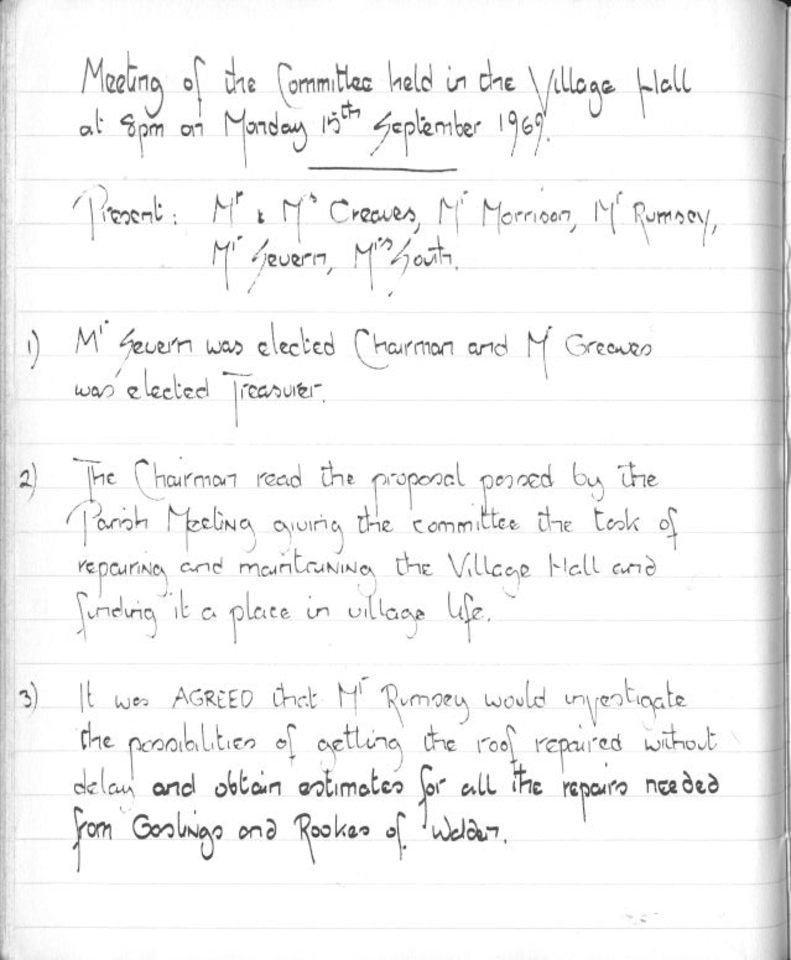 Meeting of the Committee held in the Village Hall
at 8pm on Monday 15th September 1969.
Present: Mr & Mrs Greaves, Mr Morrison, Mr Rumsey,
Mr Severn, Mrs South.
1) Mr Severn was elected Chairman and Mr Greaves
was elected Treasurer.
2) The Chairman read the proposal passed by the
Parish Meeting giving the committee the task of
repairing and maintaining the Village Hall and
finding it a place in village life.
3) It was AGREED that Mr Rumsey would investigate
the possibilities of getting the roof repaired without
delay and obtain estimates for all the repairs needed
from Goslings and Rookes of Walden.